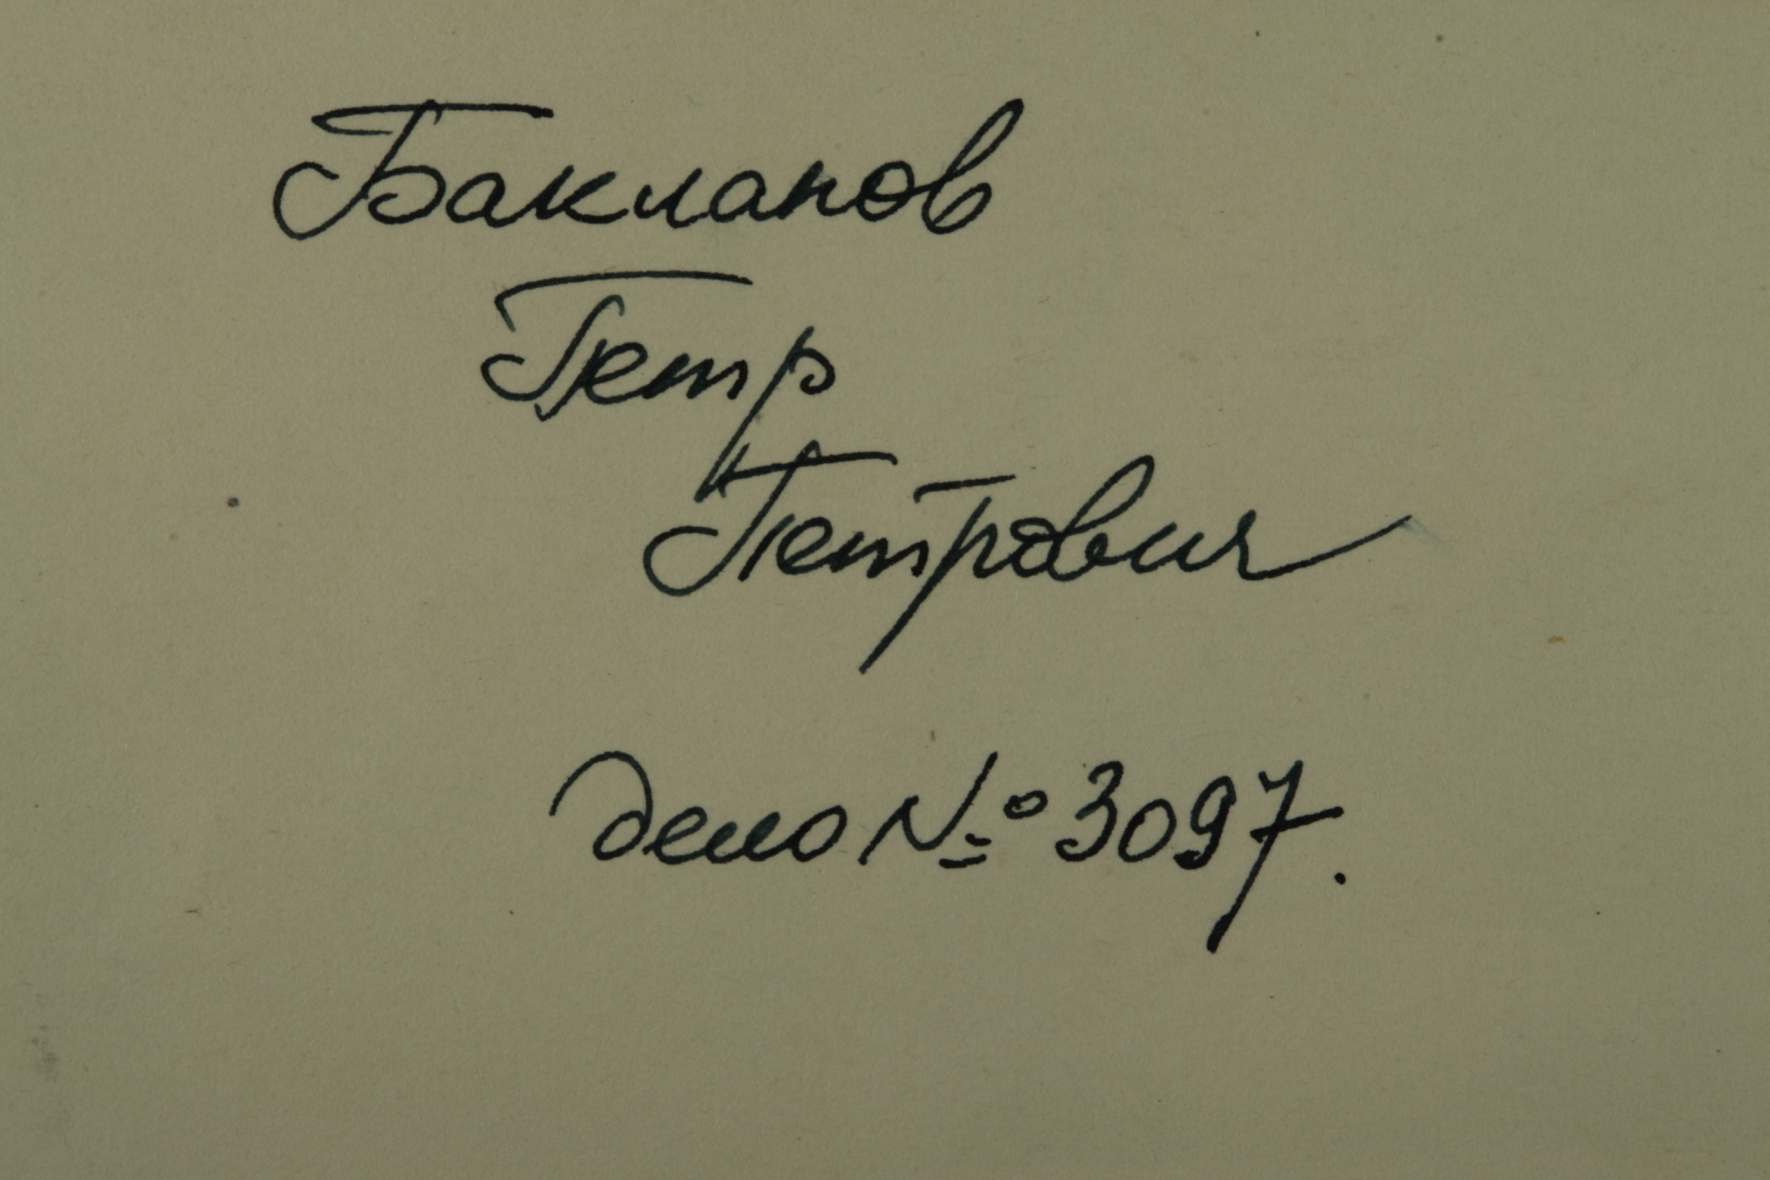 Бакланов
Петр
Петрович
дело № 3097.